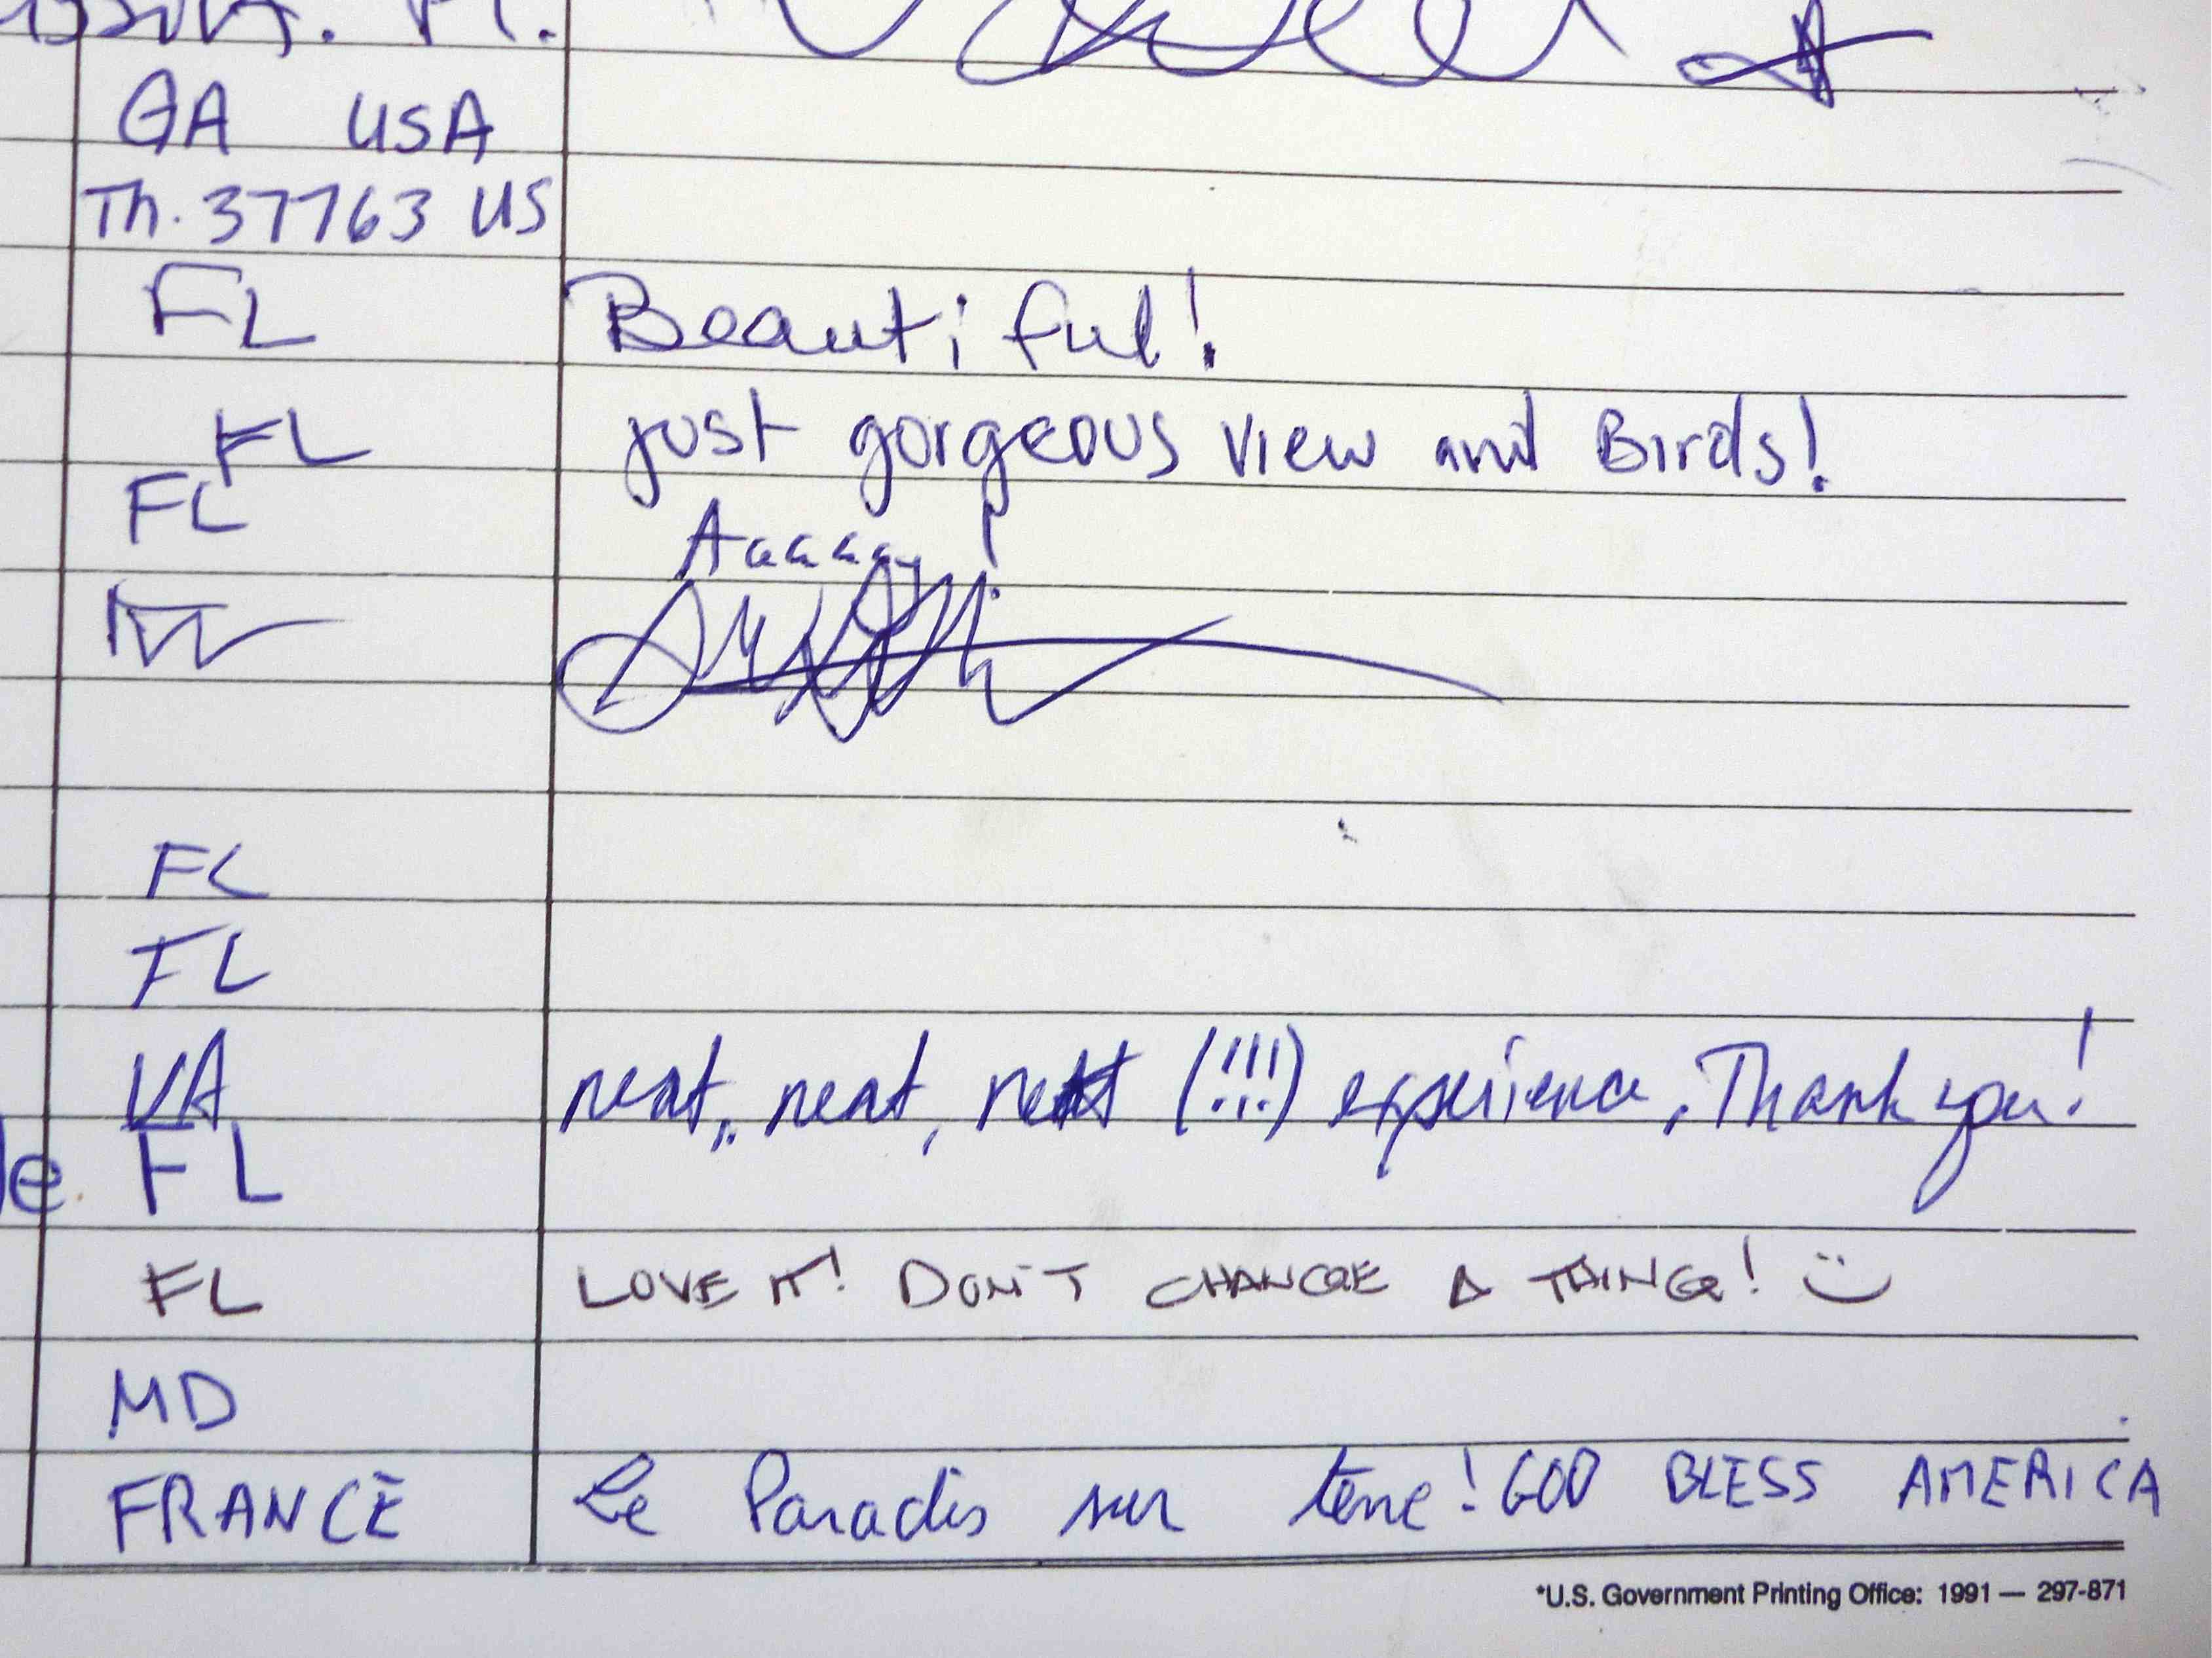 GA USA
Th. 37763 US
FL Beautiful!
FL just gorgeous view and Birds!
FL Aaaaay!
FL
FL
VA neat, neat, neat (!!!) experience, Thank you!
e. FL
FL LOVE IT! DON'T CHANGE A THING!
MD
FRANCE Le Paradis sur terre! GOD BLESS AMERICA
*U.S. Government Printing Office: 1991 — 297-871